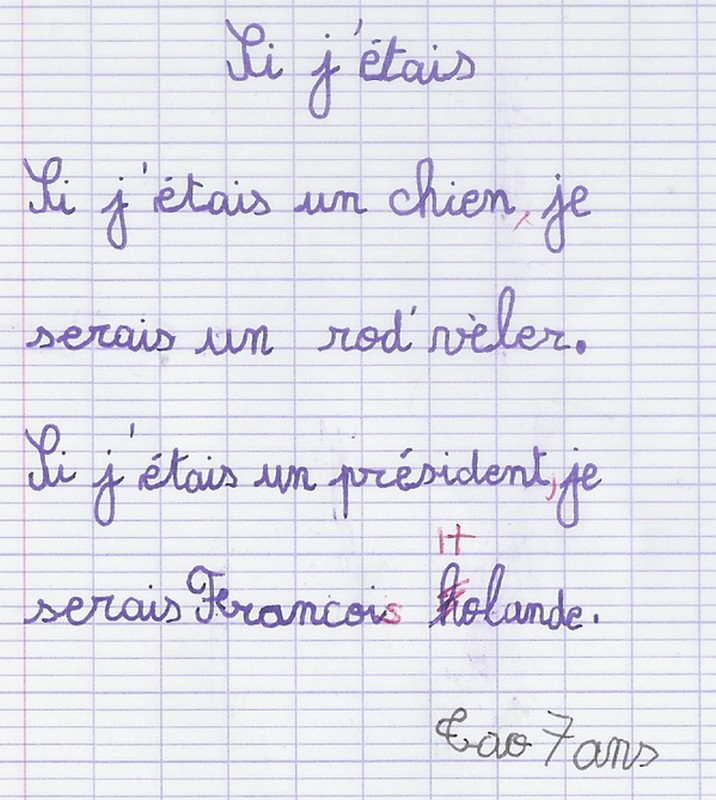 Si j'étais
Si j'étais un chien, je
serais un rod'vèler.
Si j'étais un président, je
H
serais Francois holande.
Tao 7 ans